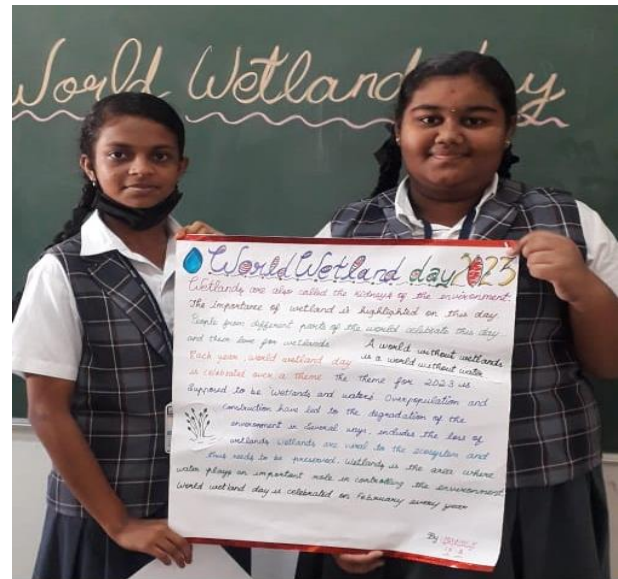 World Wetland day
World Wetland day 2023
Wetlands are also called the kidneys of the environment.
The importance of wetland is highlighted on this day
People from different parts of the world celebrate this day
and their love for wetlands
A world without wetlands
is a world without water
Each year world wetland day
is celebrated over a theme the theme for 2023 is
supposed to be 'wetlands and water'. Overpopulation and
construction have led to the degradation of the
environment in several ways, includes the loss of
wetlands. Wetlands are vital to the ecosystem and
thus needs to be preserved. Wetlands is the area where
water plays an important role in controlling the environment
World wetland day is celebrated on February every year
By